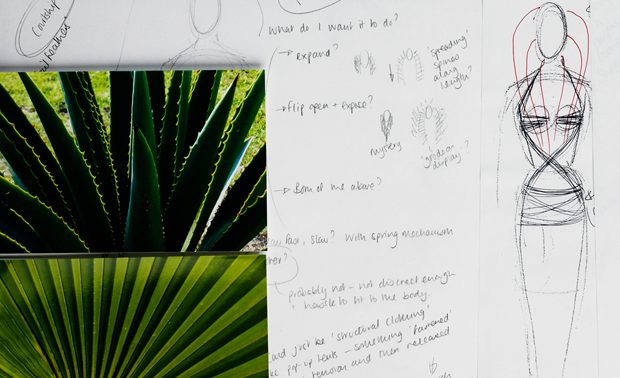 Courtship
Feather
What do I want it to do?
→ expand?
'spreading'
spines
along
length?
→ Flip open + expose?
mystery
display?
→ Both of the above?
fast, slow? With spring mechanism
probably not – not discreet enough
+ hassle to fit to the body.
and just be 'structural clothing'
pop-up tents – something 'fastened'
tension and then released